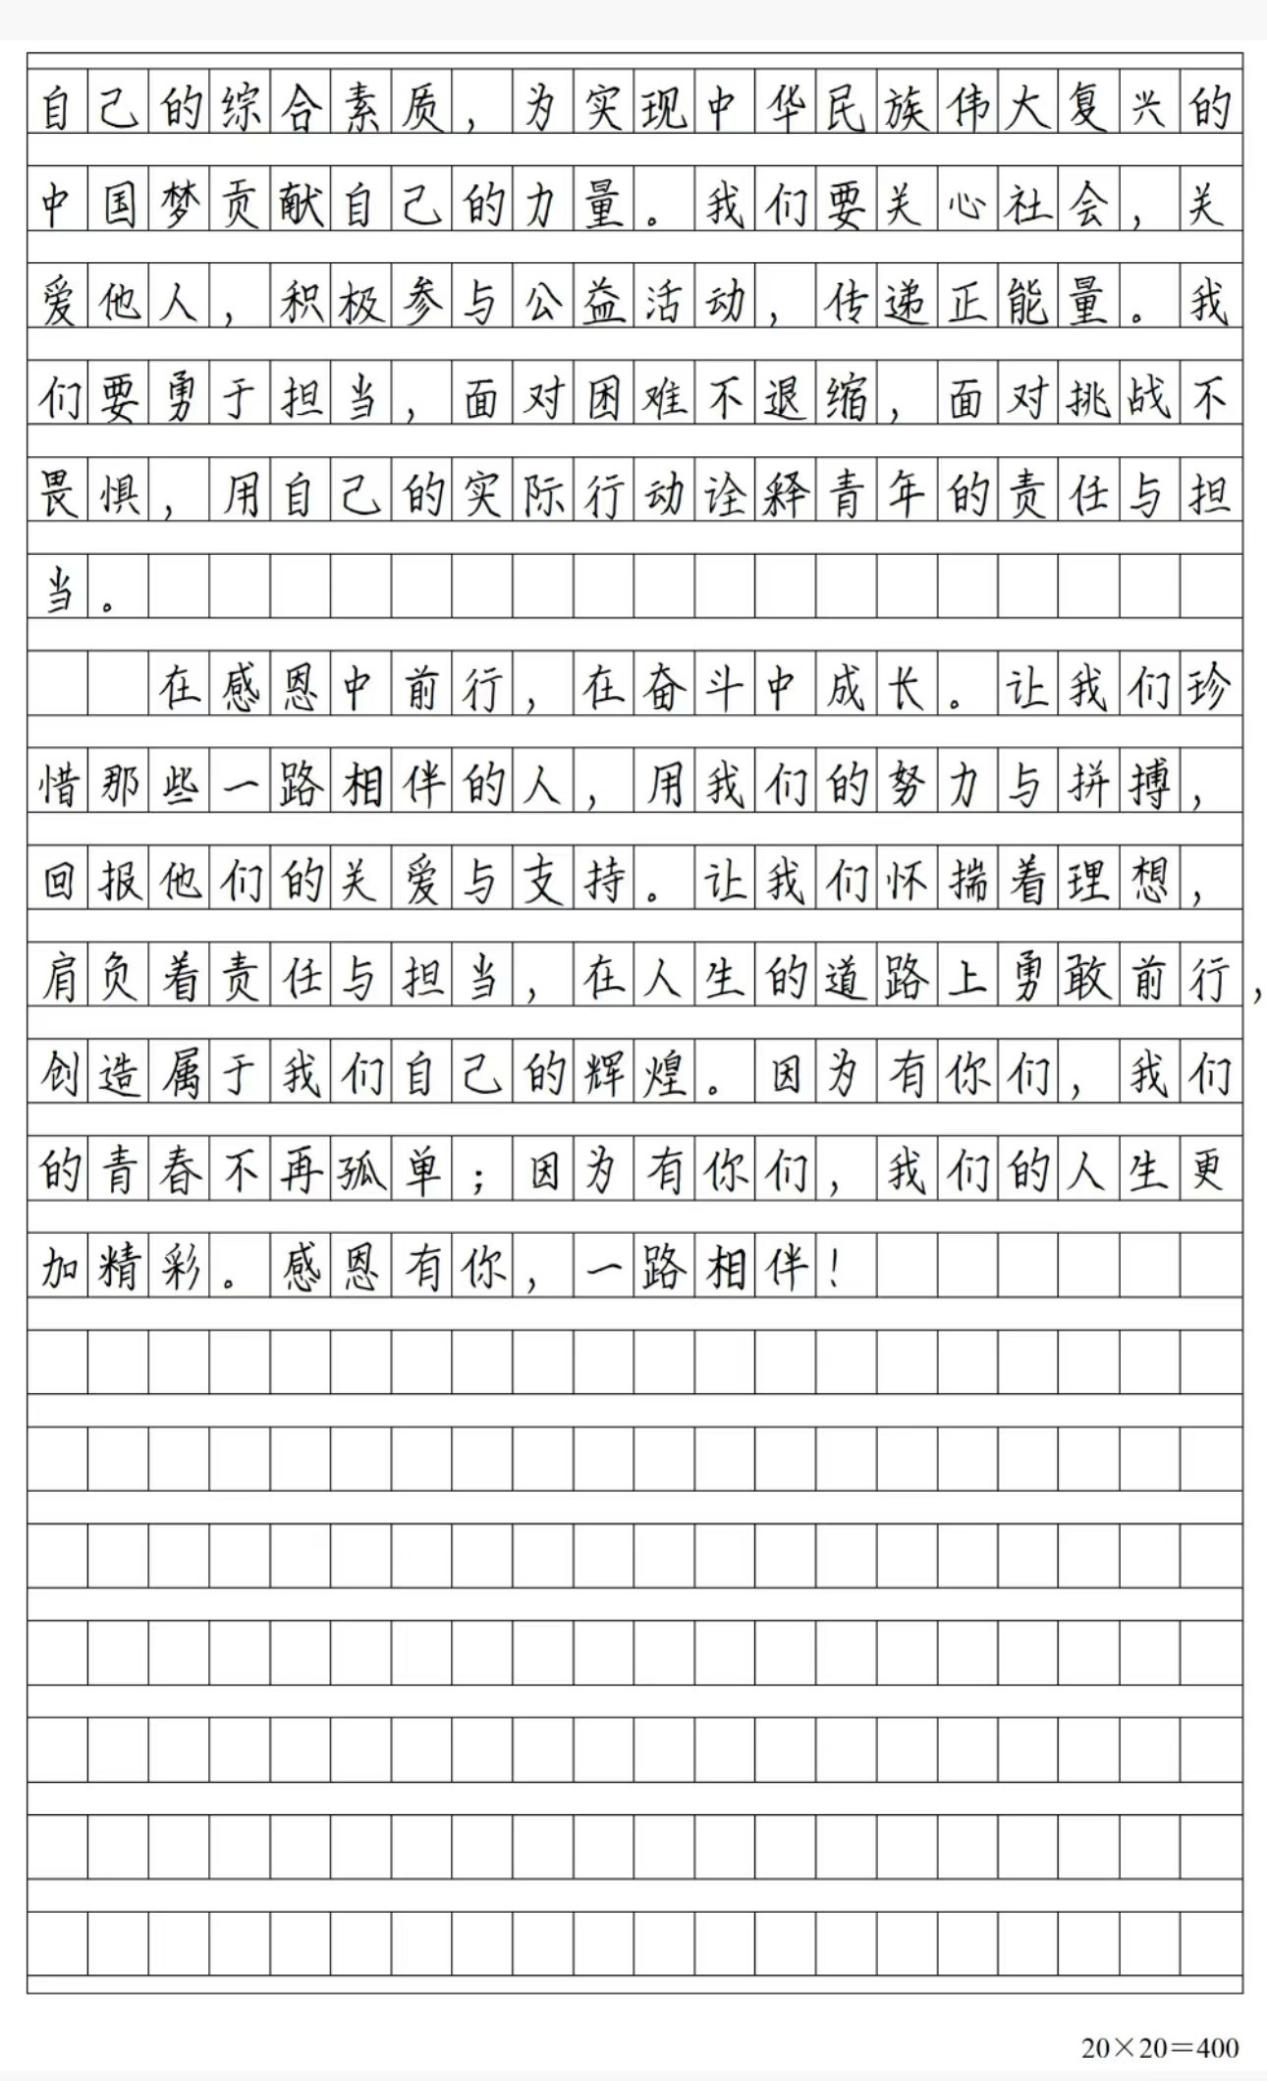 自己的综合素质，为实现中华民族伟大复兴的
中国梦贡献自己的力量。我们要关心社会，关
爱他人，积极参与公益活动，传递正能量。我
们要勇于担当，面对困难不退缩，面对挑战不
畏惧，用自己的实际行动诠释青年的责任与担
当。
在感恩中前行，在奋斗中成长。让我们珍
惜那些一路相伴的人，用我们的努力与拼搏，
回报他们的关爱与支持。让我们怀揣着理想，
肩负着责任与担当，在人生的道路上勇敢前行，
创造属于我们自己的辉煌。因为有你们，我们
的青春不再孤单；因为有你们，我们的人生更
加精彩。感恩有你，一路相伴！
20×20=400